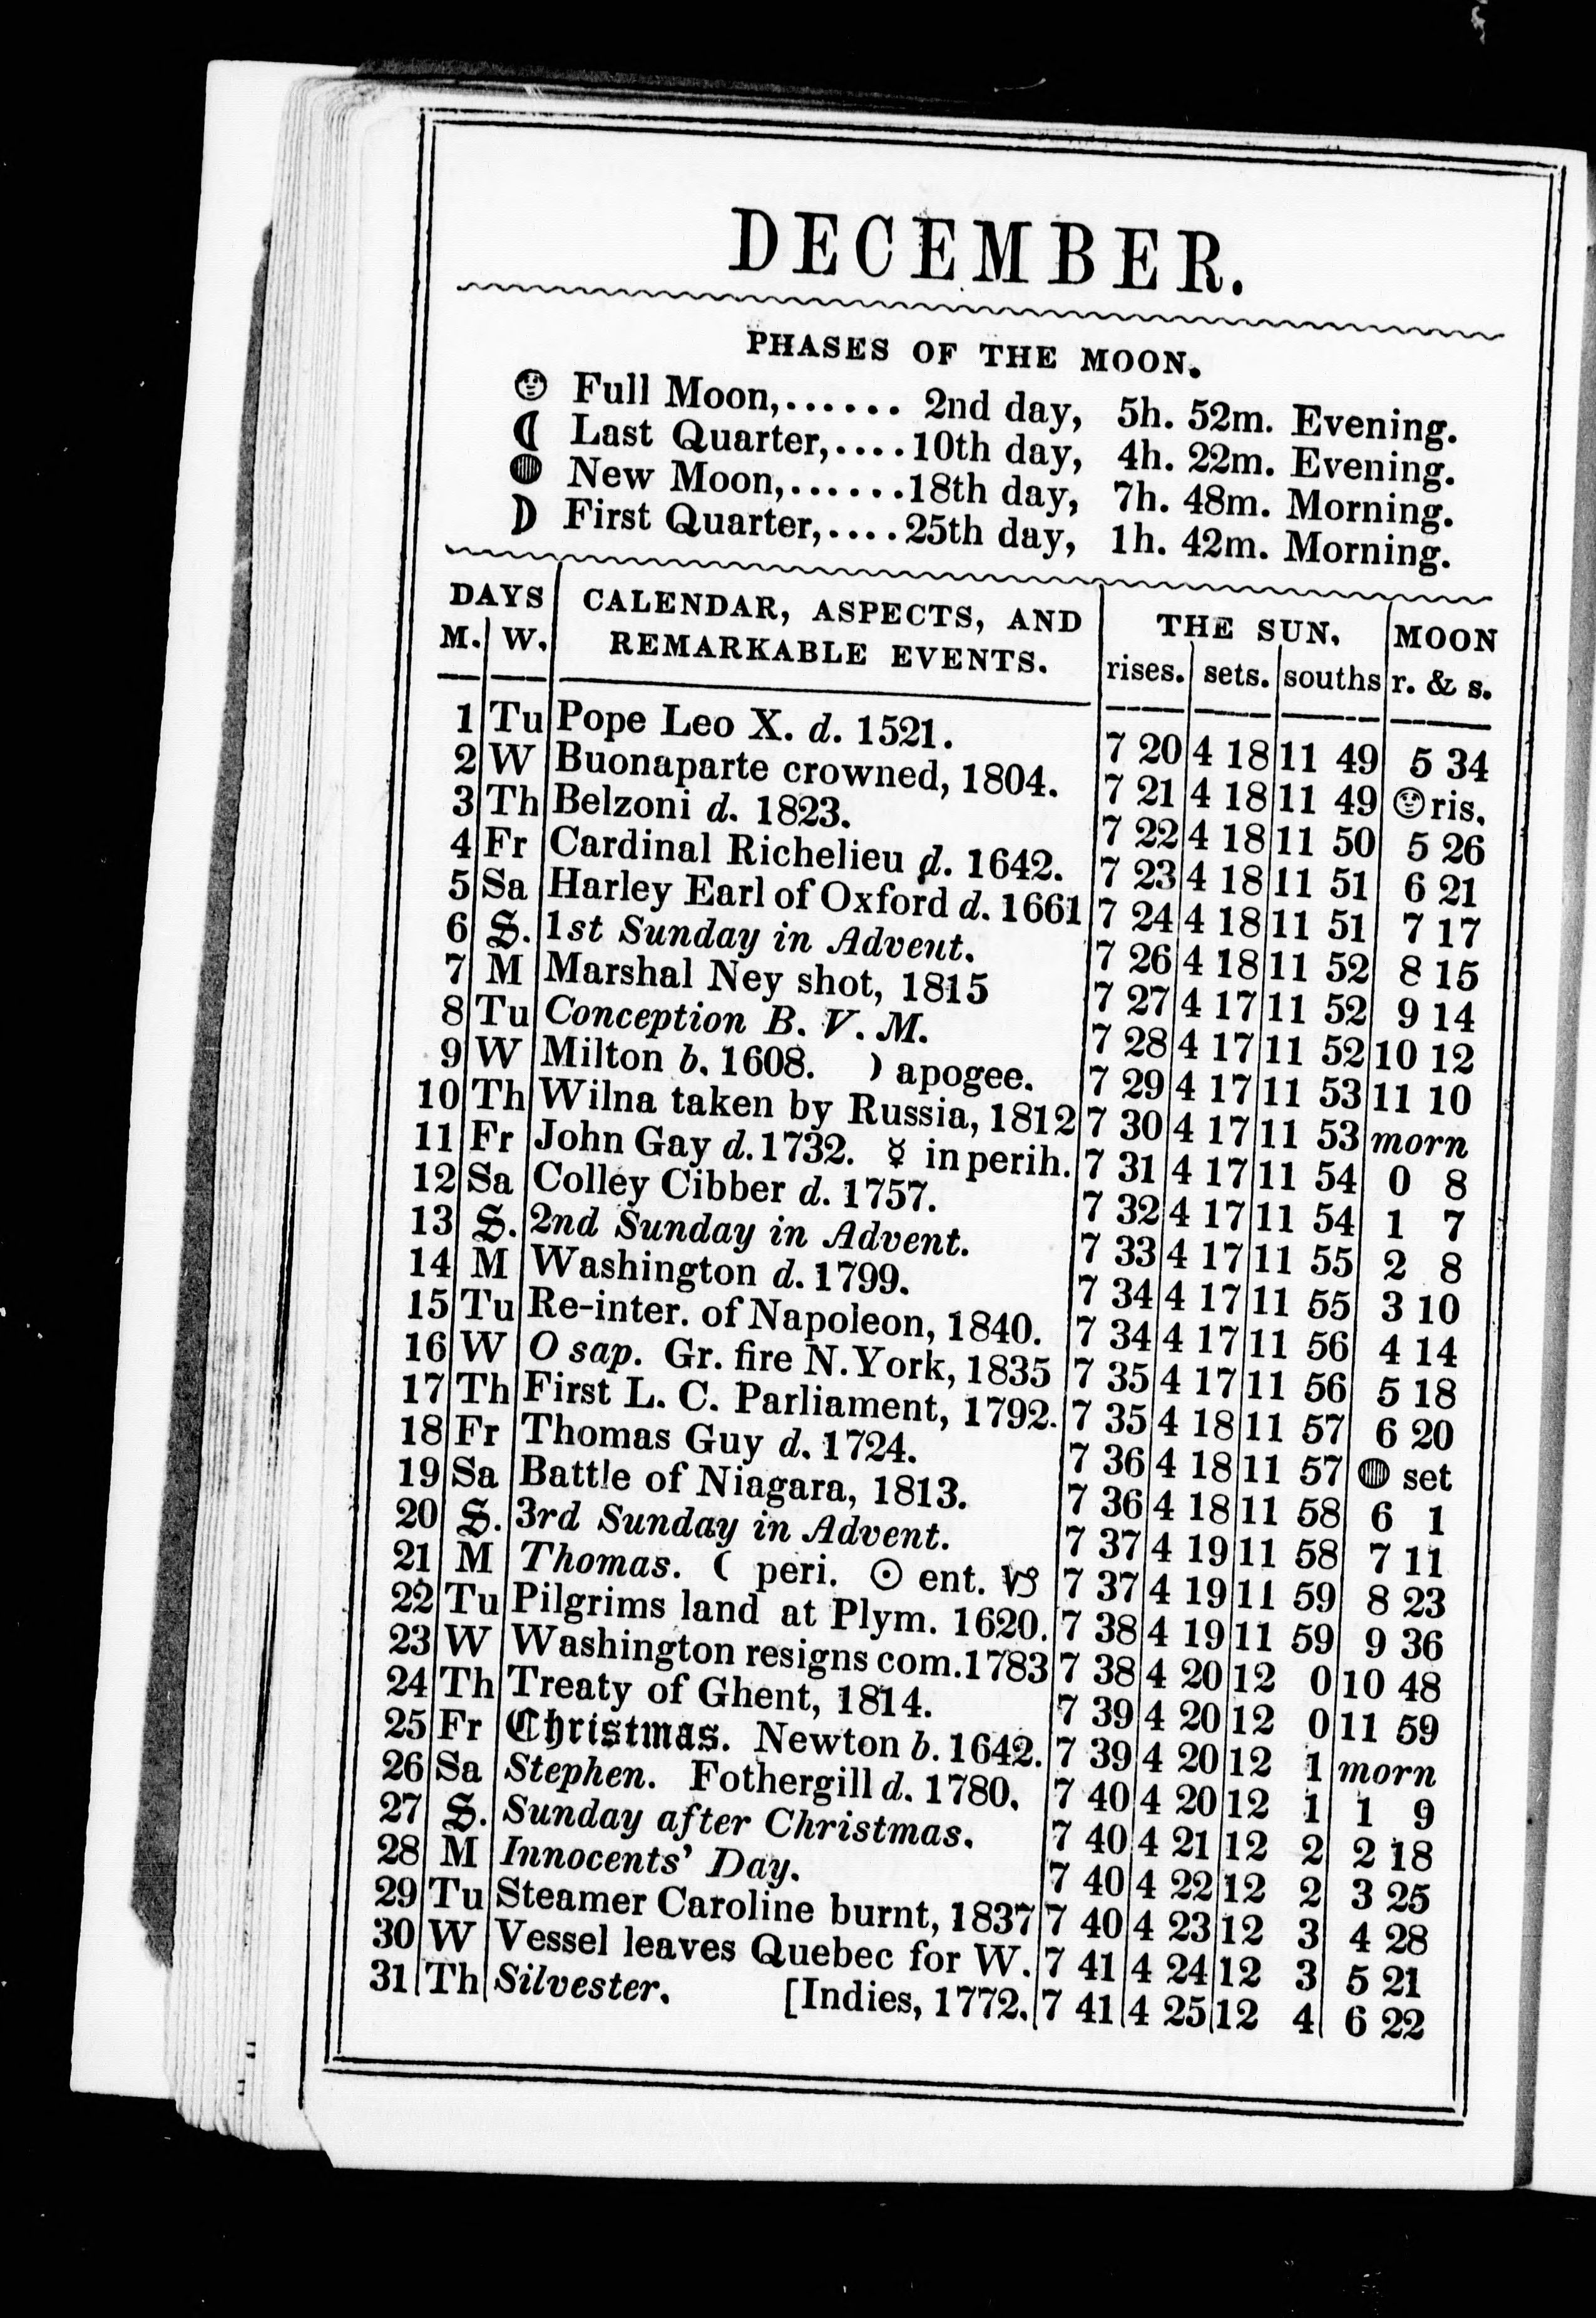 DECEMBER.
PHASES OF THE MOON.
Full Moon,...... 2nd day, 5h. 52m. Evening.
Last Quarter,....10th day, 4h. 22m. Evening.
New Moon,......18th day, 7h. 48m. Morning.
First Quarter,....25th day, 1h. 42m. Morning.
DAYS CALENDAR, ASPECTS, AND THE SUN. MOON
M. W. REMARKABLE EVENTS. rises. sets. souths r. & s.
1 Tu Pope Leo X. d. 1521. 7 20 4 18 11 49 5 34
2 W Buonaparte crowned, 1804. 7 21 4 18 11 49 ris.
3 Th Belzoni d. 1823. 7 22 4 18 11 50 5 26
4 Fr Cardinal Richelieu d. 1642. 7 23 4 18 11 51 6 21
5 Sa Harley Earl of Oxford d. 1661 7 24 4 18 11 51 7 17
6 S. 1st Sunday in Advent. 7 26 4 18 11 52 8 15
7 M Marshal Ney shot, 1815 7 27 4 17 11 52 9 14
8 Tu Conception B. V. M. 7 28 4 17 11 52 10 12
9 W Milton b. 1608. ) apogee. 7 29 4 17 11 53 11 10
10 Th Wilna taken by Russia, 1812 7 30 4 17 11 53 morn
11 Fr John Gay d. 1732. ☿ in perih. 7 31 4 17 11 54 0 8
12 Sa Colley Cibber d. 1757. 7 32 4 17 11 54 1 7
13 S. 2nd Sunday in Advent. 7 33 4 17 11 55 2 8
14 M Washington d. 1799. 7 34 4 17 11 55 3 10
15 Tu Re-inter. of Napoleon, 1840. 7 34 4 17 11 56 4 14
16 W O sap. Gr. fire N. York, 1835 7 35 4 17 11 56 5 18
17 Th First L. C. Parliament, 1792. 7 35 4 18 11 57 6 20
18 Fr Thomas Guy d. 1724. 7 36 4 18 11 57 set
19 Sa Battle of Niagara, 1813. 7 36 4 18 11 58 6 1
20 S. 3rd Sunday in Advent. 7 37 4 19 11 58 7 11
21 M Thomas. ( peri. ☉ ent. ♑ 7 37 4 19 11 59 8 23
22 Tu Pilgrims land at Plym. 1620. 7 38 4 19 11 59 9 36
23 W Washington resigns com. 1783 7 38 4 20 12 0 10 48
24 Th Treaty of Ghent, 1814. 7 39 4 20 12 0 11 59
25 Fr Christmas. Newton b. 1642. 7 39 4 20 12 1 morn
26 Sa Stephen. Fothergill d. 1780. 7 40 4 20 12 1 1 9
27 S. Sunday after Christmas. 7 40 4 21 12 2 2 18
28 M Innocents' Day. 7 40 4 22 12 2 3 25
29 Tu Steamer Caroline burnt, 1837 7 40 4 23 12 3 4 28
30 W Vessel leaves Quebec for W. 7 41 4 24 12 3 5 21
31 Th Silvester. [Indies, 1772. 7 41 4 25 12 4 6 22